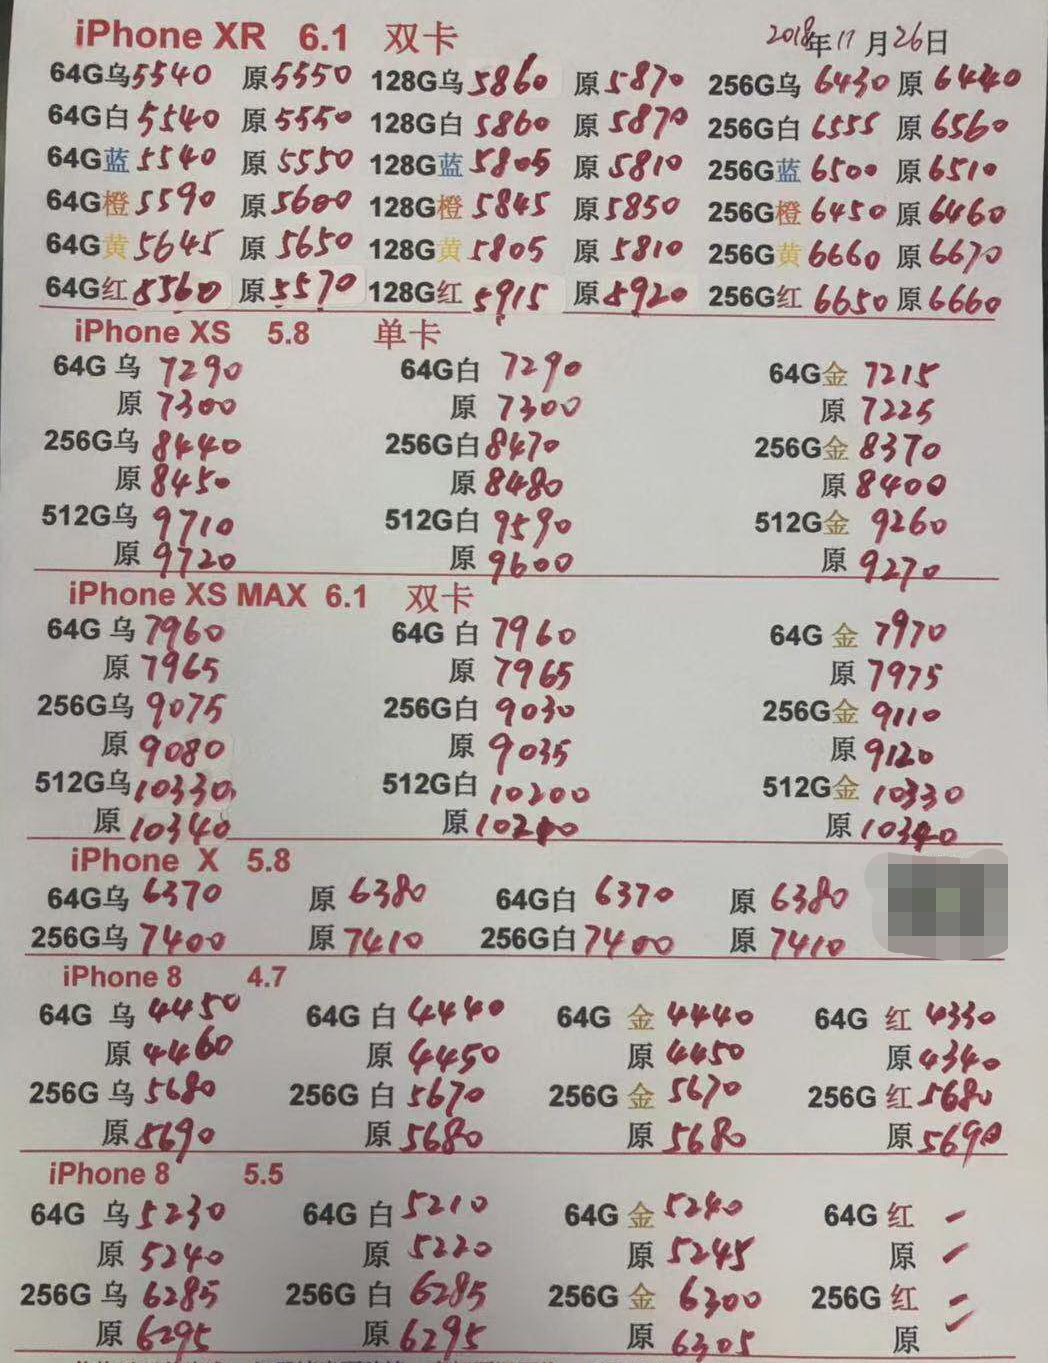 iPhone XR 6.1 双卡 2018年11月26日
64G乌5540 原5550 128G乌5860 原5870 256G乌6430 原6440
64G白5540 原5550 128G白5860 原5870 256G白6555 原6560
64G蓝5540 原5550 128G蓝5805 原5810 256G蓝6500 原6510
64G橙5590 原5600 128G橙5845 原5850 256G橙6450 原6460
64G黄5645 原5650 128G黄5805 原5810 256G黄6660 原6670
64G红5560 原5570 128G红5915 原5920 256G红6650 原6660
iPhone XS 5.8 单卡
64G 乌 7290 64G白 7290 64G金 7215
原 7300 原 7300 原 7225
256G乌 8440 256G白8470 256G金 8370
原8450 原8480 原8400
512G乌 9710 512G白9590 512G金 9260
原 9720 原 9600 原 9270
iPhone XS MAX 6.1 双卡
64G 乌7960 64G 白 7960 64G 金 7970
原7965 原 7965 原 7975
256G乌 9075 256G白 9030 256G金 9110
原9080 原 9035 原9120
512G乌10330 512G白 10200 512G金 10330
原 10340 原10210 原10340
iPhone X 5.8
64G乌 6370 原 6380 64G白 6370 原 6380
256G乌7400 原7410 256G白7400 原 7410
iPhone 8 4.7
64G 乌 4450 64G 白 4440 64G 金 4440 64G 红 4330
原4460 原 4450 原 4450 原4340
256G 乌 5680 256G 白 5670 256G 金 5670 256G 红5680
原5690 原5680 原 5680 原5690
iPhone 8 5.5
64G 乌5230 64G 白5210 64G 金5240 64G 红 -
原 5240 原 5220 原 5245 原 -
256G 乌 6285 256G 白 6285 256G 金 6300 256G 红 -
原 6295 原 6295 原 6305 原 -